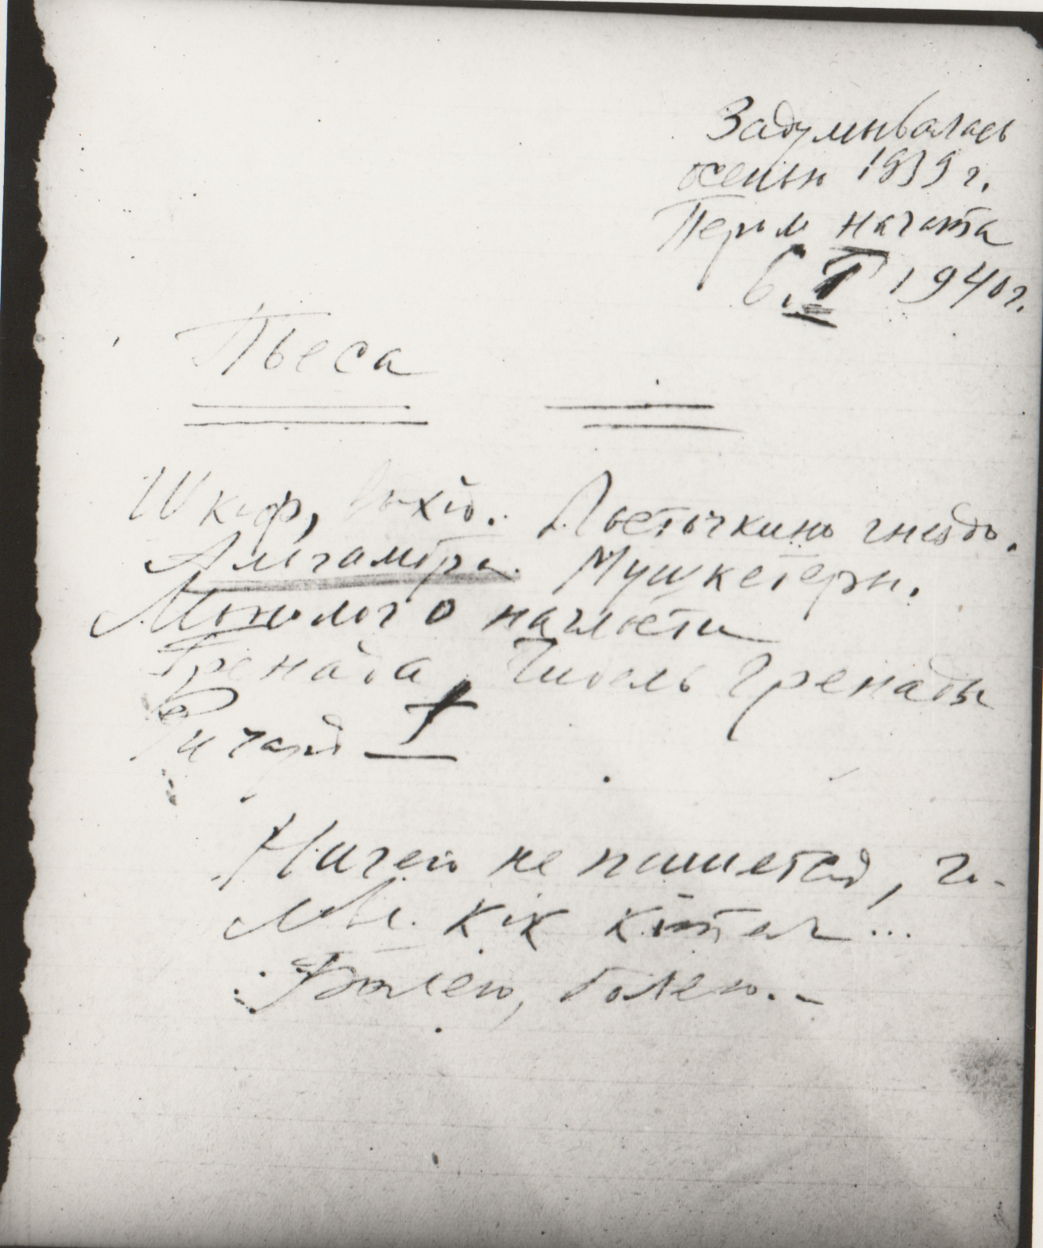 Задумывалась
осенью 1939 г.
Пером начата
6.I 1940 г.
Пьеса
Шкаф, выход. Ласточкино гнездо.
Альгамбра. Мушкетеры.
Монолог о наглости
Гренада, Гибель Гренады
Ричард I
Ничего не пишется, го-
лова как котел...
Болею, болею. –